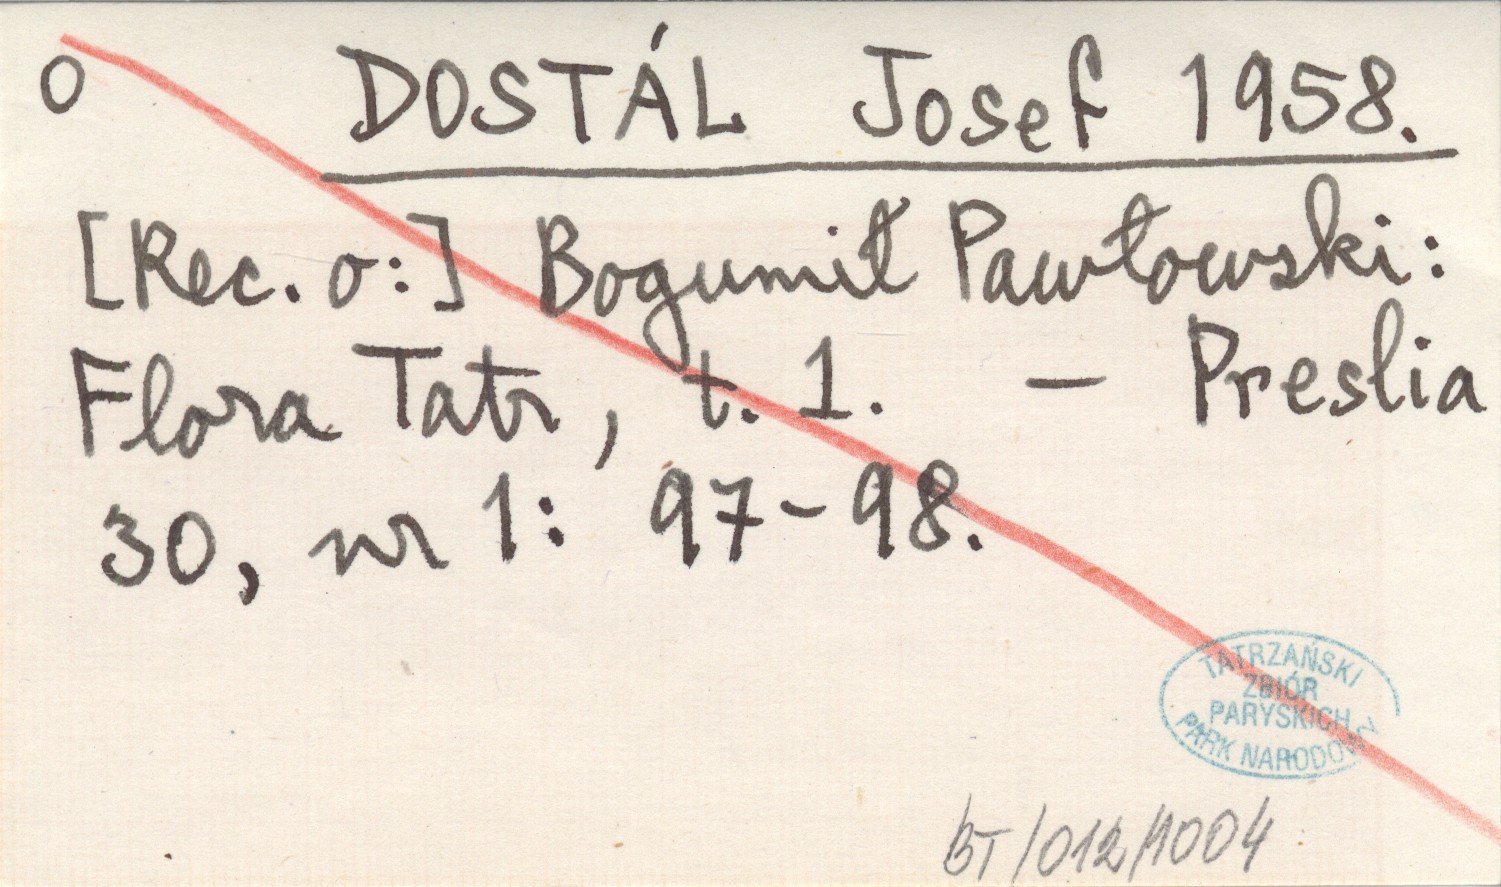 O DOSTÁL Josef 1958.
[Rec. o:] Bogumił Pawłowski:
Flora Tatr, t. 1. — Preslia
30, nr 1: 97-98.
TATRZAŃSKI
ZBIÓR
PARYSKICH
PARK NARODOWY
BT/012/1004